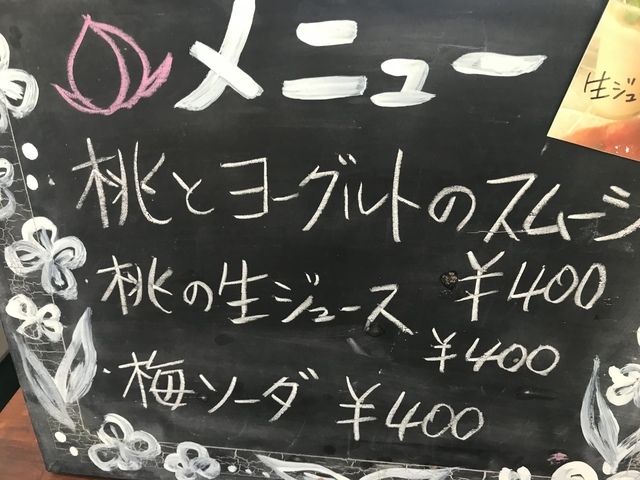 メニュー
生ジュ
桃とヨーグルトのスムージ
¥400
桃の生ジュース
¥400
梅ソーダ ¥400